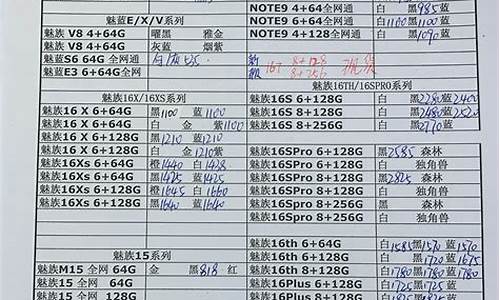 NOTE9 4+64全网通 白 黑985蓝
魅蓝E/X/V系列 NOTE9 6+64全网通 白1100黑1100蓝
魅族 V8 4+64G 曜黑 雅金 NOTE9 4+128全网通 白 黑1090蓝
魅族 V8 4+64G 灰蓝 烟紫
魅蓝S6 64G 全网通
魅蓝E3 6+64G全网通 16T 8+128
8+256
魅族16X/16XS系列 魅族16TH/16SPRO系列
魅族16 X 6+64G 黑1100 蓝1100 魅族16S 6+128G 白 黑2280蓝2400
魅族16 X 6+64G 白 金 紫1100 魅族16S 8+128G 白 黑2480蓝2520
魅族16 X 6+128G 黑1210 蓝1210 魅族16S 8+256G 白 黑2770蓝
魅族16 X 6+128G 白 金 蓝1210紫
魅族16Xs 6+64G 橙1440 白1428 魅族16SPro 6+128G 黑2585 森林
魅族16Xs 6+64G 黑1425 蓝1425 魅族16SPro 6+128G 白 独角兽
魅族16Xs 6+128G 橙1645 白1660 魅族16SPro 8+128G 黑2825 森林
魅族16Xs 6+128G 黑1640 蓝1640 魅族16SPro 8+128G 白 独角兽
魅族16SPro 8+256G 黑 森林
魅族16SPro 8+256G 白 独角兽
魅族15系列 魅族16th 6+64G 白1585黑1570蓝1570
魅族M15 全网 64G 金 黑818 红 魅族16th 6+128G 白 黑1720蓝1675
魅族15 全网 64G 魅族16th 8+128G 白1780黑1780蓝1780
魅族15 全网 128G 魅族16Plus 6+128G 白1725黑1725蓝